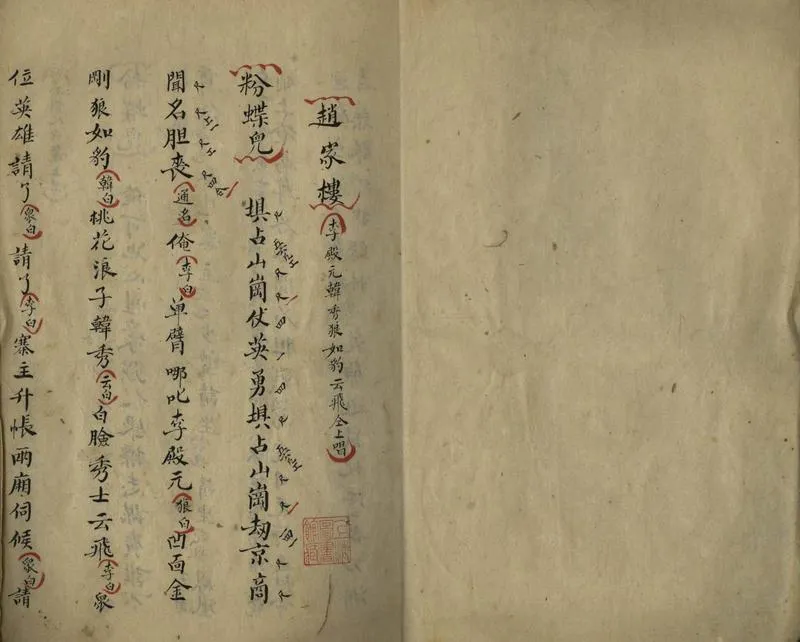 趙家樓(李殿元韓秀狼如豹云飛仝上唱)
粉蝶兒 惧占山崗仗英勇惧占山崗劫京商
聞名胆喪(通名)俺(李白)单臂哪叱李殿元(狼白)凹面金
剛狼如豹(韓白)桃花浪子韓秀(云白)白臉秀士云飛(李白)衆
位英雄請了(衆白)請了(李白)寨主升帳兩廂伺候(衆白)請